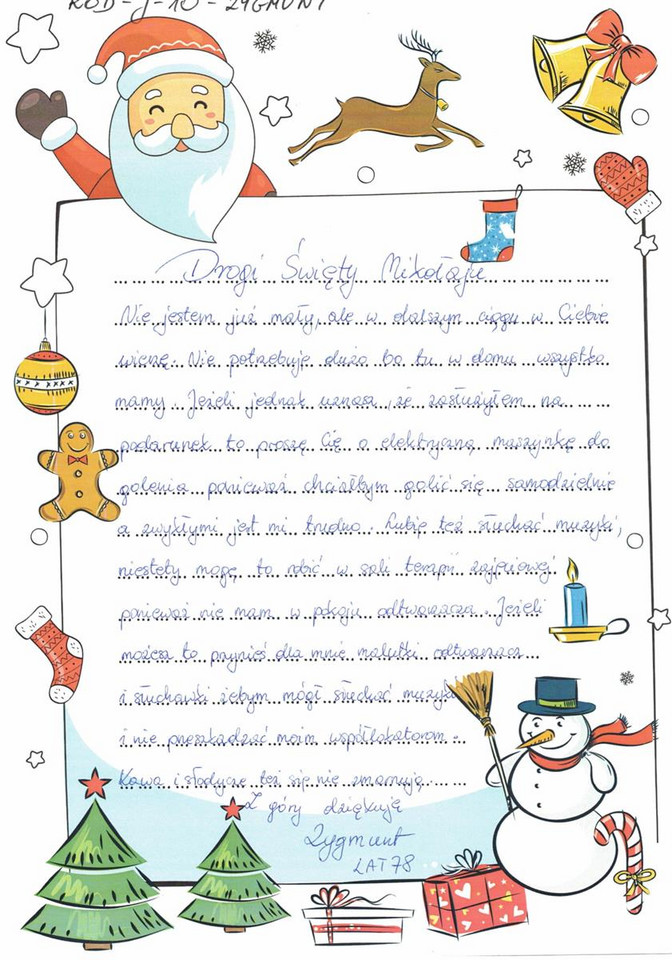 KOD-J-10-ZYGMUNT
Drogi Święty Mikołaju
Nie jestem już mały, ale w dalszym ciągu w Ciebie
wierzę. Nie potrzebuję dużo bo tu w domu wszystko
mamy. Jeżeli jednak uznasz, że zasłużyłem na
podarunek to proszę Cię o elektryczną maszynkę do
golenia ponieważ chciałbym golić się samodzielnie
a zwykłymi jest mi trudno. Lubię też słuchać muzyki,
niestety mogę to robić w sali terapii zajęciowej
ponieważ nie mam w pokoju odtwarzacza. Jeżeli
możesz to przynieś dla mnie malutki odtwarzacz
i słuchawki żebym mógł słuchać muzyki
i nie przeszkadzać moim współlokatorom.
Kawa i słodycze też się nie zmarnują.
Z góry dziękuję
Zygmunt
LAT 78